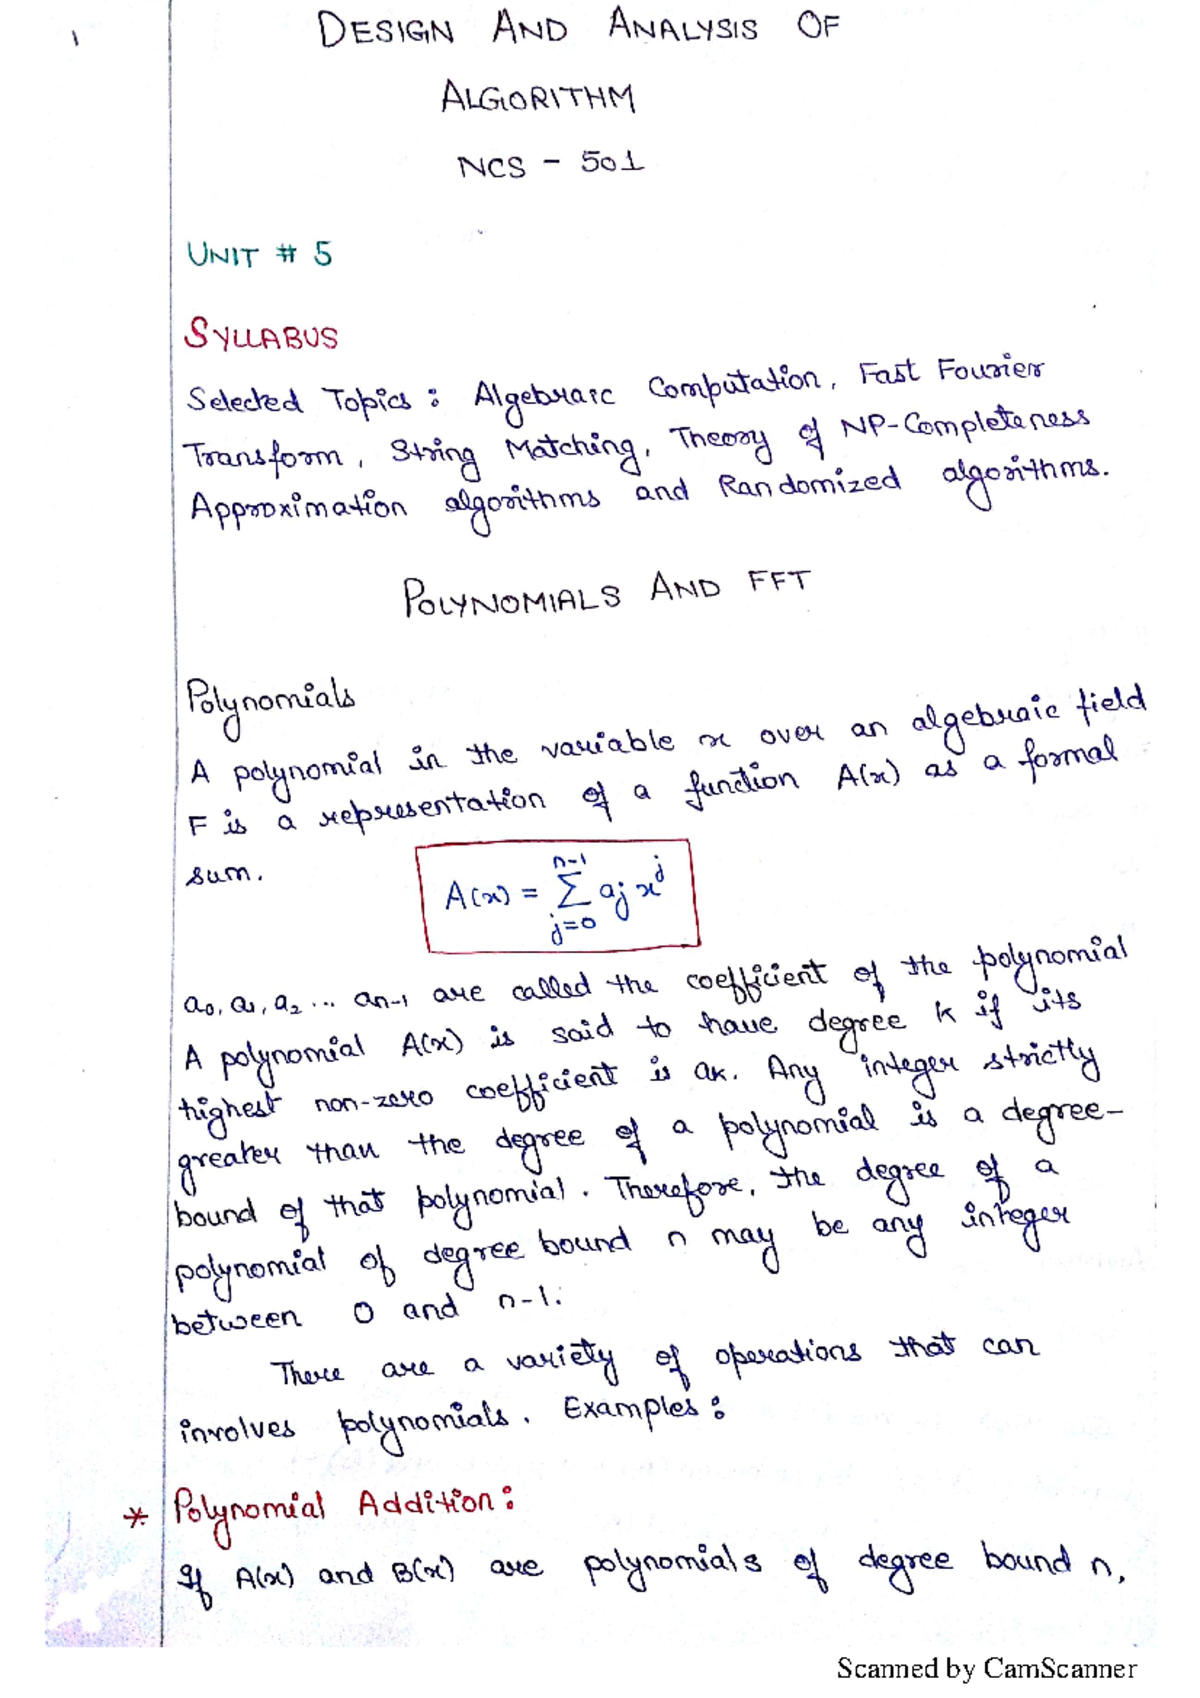 1
DESIGN AND ANALYSIS OF
ALGORITHM
NCS - 501
UNIT # 5
SYLLABUS
Selected Topics : Algebraic Computation, Fast Fourier
Transform, String Matching, Theory of NP-Completeness
Approximation algorithms and Randomized algorithms.
POLYNOMIALS AND FFT
Polynomials
A polynomial in the variable x over an algebraic field
F is a representation of a function A(x) as a formal
sum.
A(x) = n-1 Σ j=0 aj x^j
a0, a1, a2 ... an-1 are called the coefficient of the polynomial
A polynomial A(x) is said to have degree K if its
highest non-zero coefficient is aK. Any integer strictly
greater than the degree of a polynomial is a degree-
bound of that polynomial. Therefore, the degree of a
polynomial of degree bound n may be any integer
between 0 and n-1.
There are a variety of operations that can
involves polynomials. Examples :
* Polynomial Addition :
If A(x) and B(x) are polynomials of degree bound n,
Scanned by CamScanner